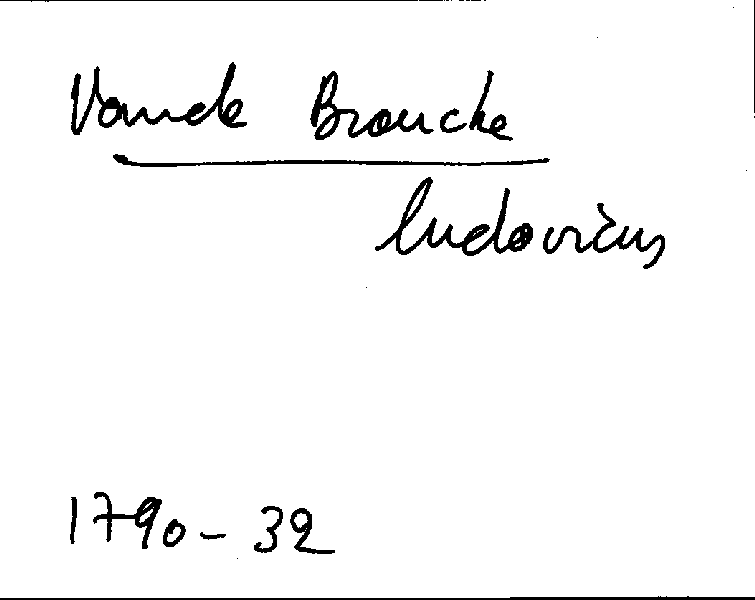 Vande Broucke
Ludovicus
1790 - 32